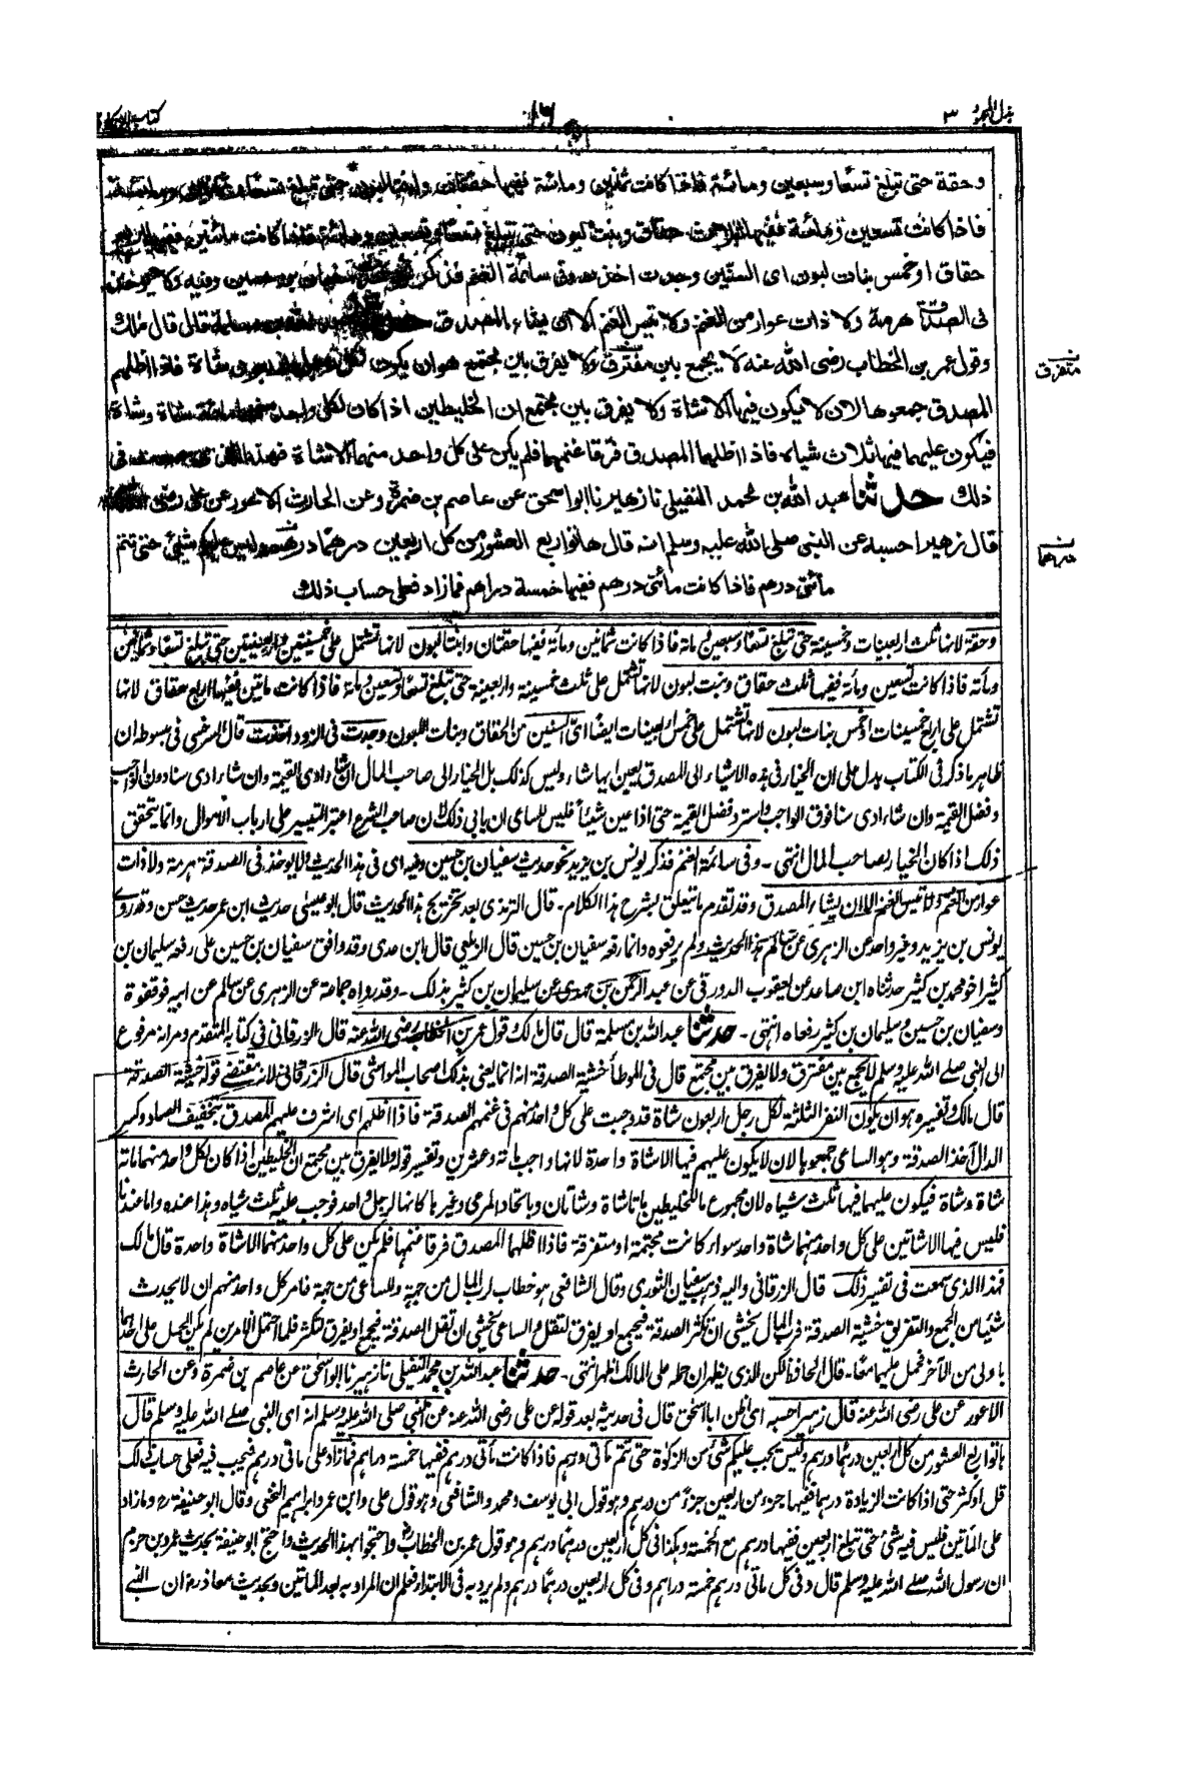 بذل المجهود ٣
١٦
كتاب الزكوة
وحقة حتى تبلغ تسعا وسبعين ومائة فاذا كانت ثمانين ومائة ففيها حقتان وابنتا لبون حتى تبلغ تسعا
فاذا كانت تسعين ومائة ففيها ثلاث حقاق وبنت لبون حتى تبلغ تسعا وتسعين ومائة فاذا كانت مائتين ففيها اربع
حقاق او خمس بنات لبون اى السنين وجدت اخذت وفى سائمة الغنم فذكر نحو حديث سفيان بن حسين وفيه ولا يوخذ
فى الصدقة هرمة ولا ذات عوار من الغنم ولا تيس الغنم الا ان يشاء المصدق حدثنا عبد الله بن مسلمة قال قال مالك
وقول عمر بن الخطاب رضى الله عنه لا يجمع بين مفترق ولا يفرق بين مجتمع هو ان يكون لكل رجل اربعون شاة فاذا اظلهم
المصدق جمعوها لان لا يكون فيها الا شاة ولا يفرق بين مجتمع ان الخليطين اذا كان لكل واحد منهما مائة شاة وشاة
فيكون عليهما فيها ثلاث شياه فاذا اظلهما المصدق فرقا غنمهما فلم يكن على كل واحد منهما الا شاة فهذا الذى سمعت فى
ذلك حدثنا عبد الله بن محمد النفيلى نا زهير نا ابو اسحق عن عاصم بن ضمرة وعن الحارث الاعور عن على رضى
قال زهير احسبه عن النبى صلى الله عليه وسلم انه قال هاتوا ربع العشور من كل اربعين درهما درهم وليس عليكم شيئ حتى تتم
مائتى درهم فاذا كانت مائتى درهم ففيها خمسة دراهم فما زاد فعلى حساب ذلك
ن متفرق
ن درهما
وحقة لانها ثلث اربعينات وخمسينة حتى تبلغ تسعا وسبعين ومائة فاذا كانت ثمانين ومأئة ففيها حقتان وابنتا لبون لانها تشتمل على خمسينتين واربعينتين حتى تبلغ تسعا وثمانين
ومأته فاذا كانت تسعين ومأئة ففيها ثلث حقاق وبنت لبون لانها تشتمل على ثلث خمسينة واربعينة حتى تبلغ تسعا وتسعين ومائة فاذا كانت مأتين ففيها اربع حقاق لانها
تشتمل على اربع خمسينات او خمس بنات لبون لانها تشتمل على خمس اربعينات ايضا اى السنين من الحقاق وبنات اللبون وجدت فى الزود اخذت قال السرخسى فى مبسوطه ان
ظاهر ما ذكر فى الكتاب يدل على ان الخيار فى هذه الاشياء الى المصدق يعين ايها شاء وليس كذلك بل الخيار الى صاحب المال ان شاء ادى القيمة وان شاء ادى سنا دون الواجب
وفضل القيمة وان شاء ادى سنا فوق الواجب واسترد فضل القيمة حتى اذا عين شيئا فليس للساعى ان يابى ذلك لان صاحب الشرع اعتبر التيسير على ارباب الاموال وانما يتحقق
ذلك اذا كان الخيار لصاحب المال انتهى - وفى سائمة الغنم فذكر يونس بن يزيد نحو حديث سفيان بن حسين وفيه اى فى هذا الحديث لا يوخذ فى الصدقة هرمة ولا ذات
عوار من الغنم ولا تيس الغنم الا ان يشاء المصدق وقد تقدم ما يتعلق بشرح هذا الكلام - قال الترمذى بعد تخريج هذا الحديث قال ابو عيسى حديث ابن عمر حديث حسن وقد روى
يونس بن يزيد وغير واحد عن الزهرى عن سالم هذا الحديث ولم يرفعوه وانما رفعه سفيان بن حسين قال الزيلعي قال ابن عدى وقد وافق سفيان بن حسين على رفعه سليمان بن
كثير اخو محمد بن كثير حدثناه ابن صاعد عن يعقوب الدورقى عن عبد الرحمن بن مهدى عن سليمان بن كثير بذلك - وقد رواه جماعة عن الزهرى عن سالم عن ابيه فوقفوه
وسفيان بن حسين وسليمان بن كثير رفعاه انتهى - حدثنا عبد الله بن مسلمة قال قال مالك قول عمر بن الخطاب رضى الله عنه قال الزرقانى فى كتابه المتقدم ومر انه مرفوع
الى النبى صلے الله عليه وسلم لا يجمع بين مفترق ولا يفرق بين مجتمع قال فى الموطأ خشية الصدقة انه انما يعنى بذلك اصحاب المواشى قال الزرقانى لانه مقتضى قوله خشية الصدقة
قال مالك وتفسيره هو ان يكون النفر الثلثة لكل رجل اربعون شاة قد وجبت على كل واحد منهم فى غنمه الصدقة فاذا اظلهم اى اشرف عليهم المصدق بتخفيف الصاد وكسر
الدال آخذ الصدقة وهو الساعى جمعوها لان لا يكون عليهم فيها الا شاة واحدة لانها واجب مائة وعشرين وتفسير قوله ولا يفرق بين مجتمع ان الخليطين اذا كان لكل واحد منهما مائة
شاة وشاة فيكون عليهما فيها ثلث شياه لان مجموع مال الخليطين مائتا شاة وشاتان وباتحاد المرعى وغيره ما كانها لرجل واحد فوجب عليه ثلث شياه وهذا عنده واما عندنا
فليس فيها الا شاتين على كل واحد منهما شاة واحد سواء كانت مجتمعة او متفرقة فاذا اظلهما المصدق فرقا غنمهما فلم يكن على كل واحد منهما الا شاة واحدة قال مالك
فهذا الذى سمعت فى تفسير ذلك قال الزرقانى واليه ذهب سفيان الثورى وقال الشافعى هو خطاب لرب المال من جهة وللساعى من جهة فامر كل واحد منهم ان لا يحدث
شيئا من الجمع والتفريق خشية الصدقة فرب المال يخشى ان تكثر الصدقة فيجمع او يفرق لتقل والساعى يخشى ان تقل الصدقة فيجمع او يفرق لتكثر فلما احتمل الامرين لم يكن الحمل على احدهما
باولى من الآخر فحمل عليهما معا - قال الحافظ لكن الذى يظهر ان حمله على المالك اظهر انتهى - حدثنا عبد الله بن محمد النفيلى نا زهير نا ابو اسحق عن عاصم بن ضمرة وعن الحارث
الاعور عن على رضى الله عنه قال زهير احسبه اى اظن ابا اسحق قال فى حديثه بعد قوله عن على رضى الله عنه عن النبى صلى الله عليه وسلم انه اى النبى صلے الله عليه وسلم قال
هاتوا ربع العشور من كل اربعين درهما درهم وليس يجب عليكم شئ من الزكوة حتى تتم مأتى درهم فاذا كانت مأتى درهم ففيها خمسة دراهم فما زاد على مأتى درهم فيجب فيه فعلى حساب ذلك
قل او كثر حتى اذا كانت الزيادة درهما ففيها جزء من اربعين جزء من درهم وهو قول ابى يوسف ومحمد والشافعى وهو قول على وابن عمر وابراهيم النخعى وقال ابو حنيفة رح وما زاد
على المأتين فليس فيه شئ حتى تبلغ اربعين ففيها درهم مع الخمسة وهكذا فى كل اربعين درهما درهم وهو قول عمر بن الخطاب واحتجوا بهذا الحديث واحتج ابو حنيفة بحديث عمرو بن حزم
ان رسول الله صلے الله عليه وسلم قال وفى كل مأتى درهم خمسة دراهم وفى كل اربعين درهما درهم ولم يرد به فى الابتداء فعلم ان المراد به بعد المأتين وبحديث معاذ رض ان النبے